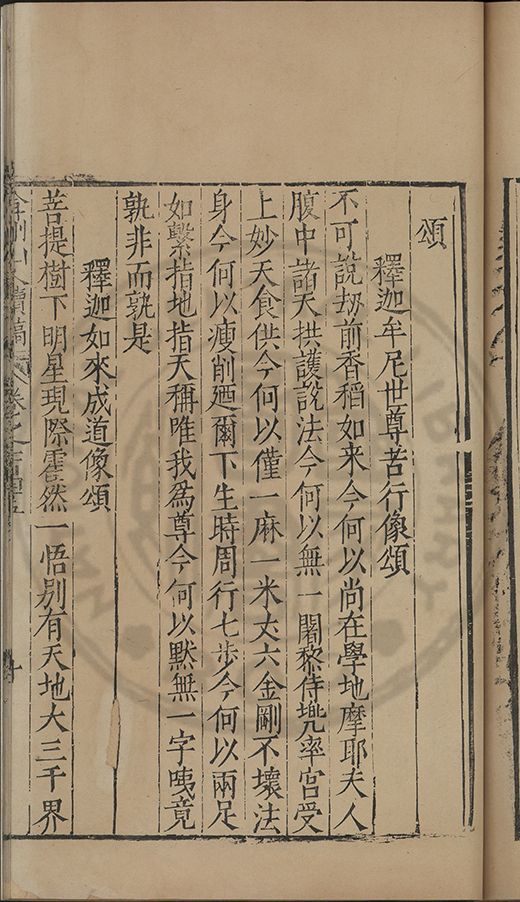 頌
釋迦牟尼世尊苦行像頌
不可說劫前香稻如来今何以尚在學地摩耶夫人
腹中諸天拱護說法今何以無一闍黎侍兠率宮受
上妙天食供今何以僅一麻一米丈六金剛不壞法
身今何以瘦削廼爾下生時周行七步今何以兩足
如縶指地指天稱唯我為尊今何以默無一字咦竟
孰非而孰是
釋迦如來成道像頌
菩提樹下明星現際霍然一悟别有天地大三千界
弇州山人續稿 卷之一百四十五
十